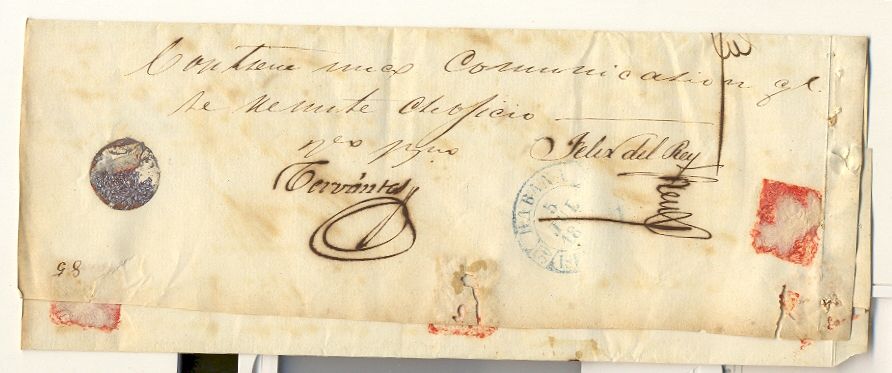 Contiene una Comunicacion qe.
se remite de oficio
Felix del Rey
Cervántes
HABANA
5
18
85